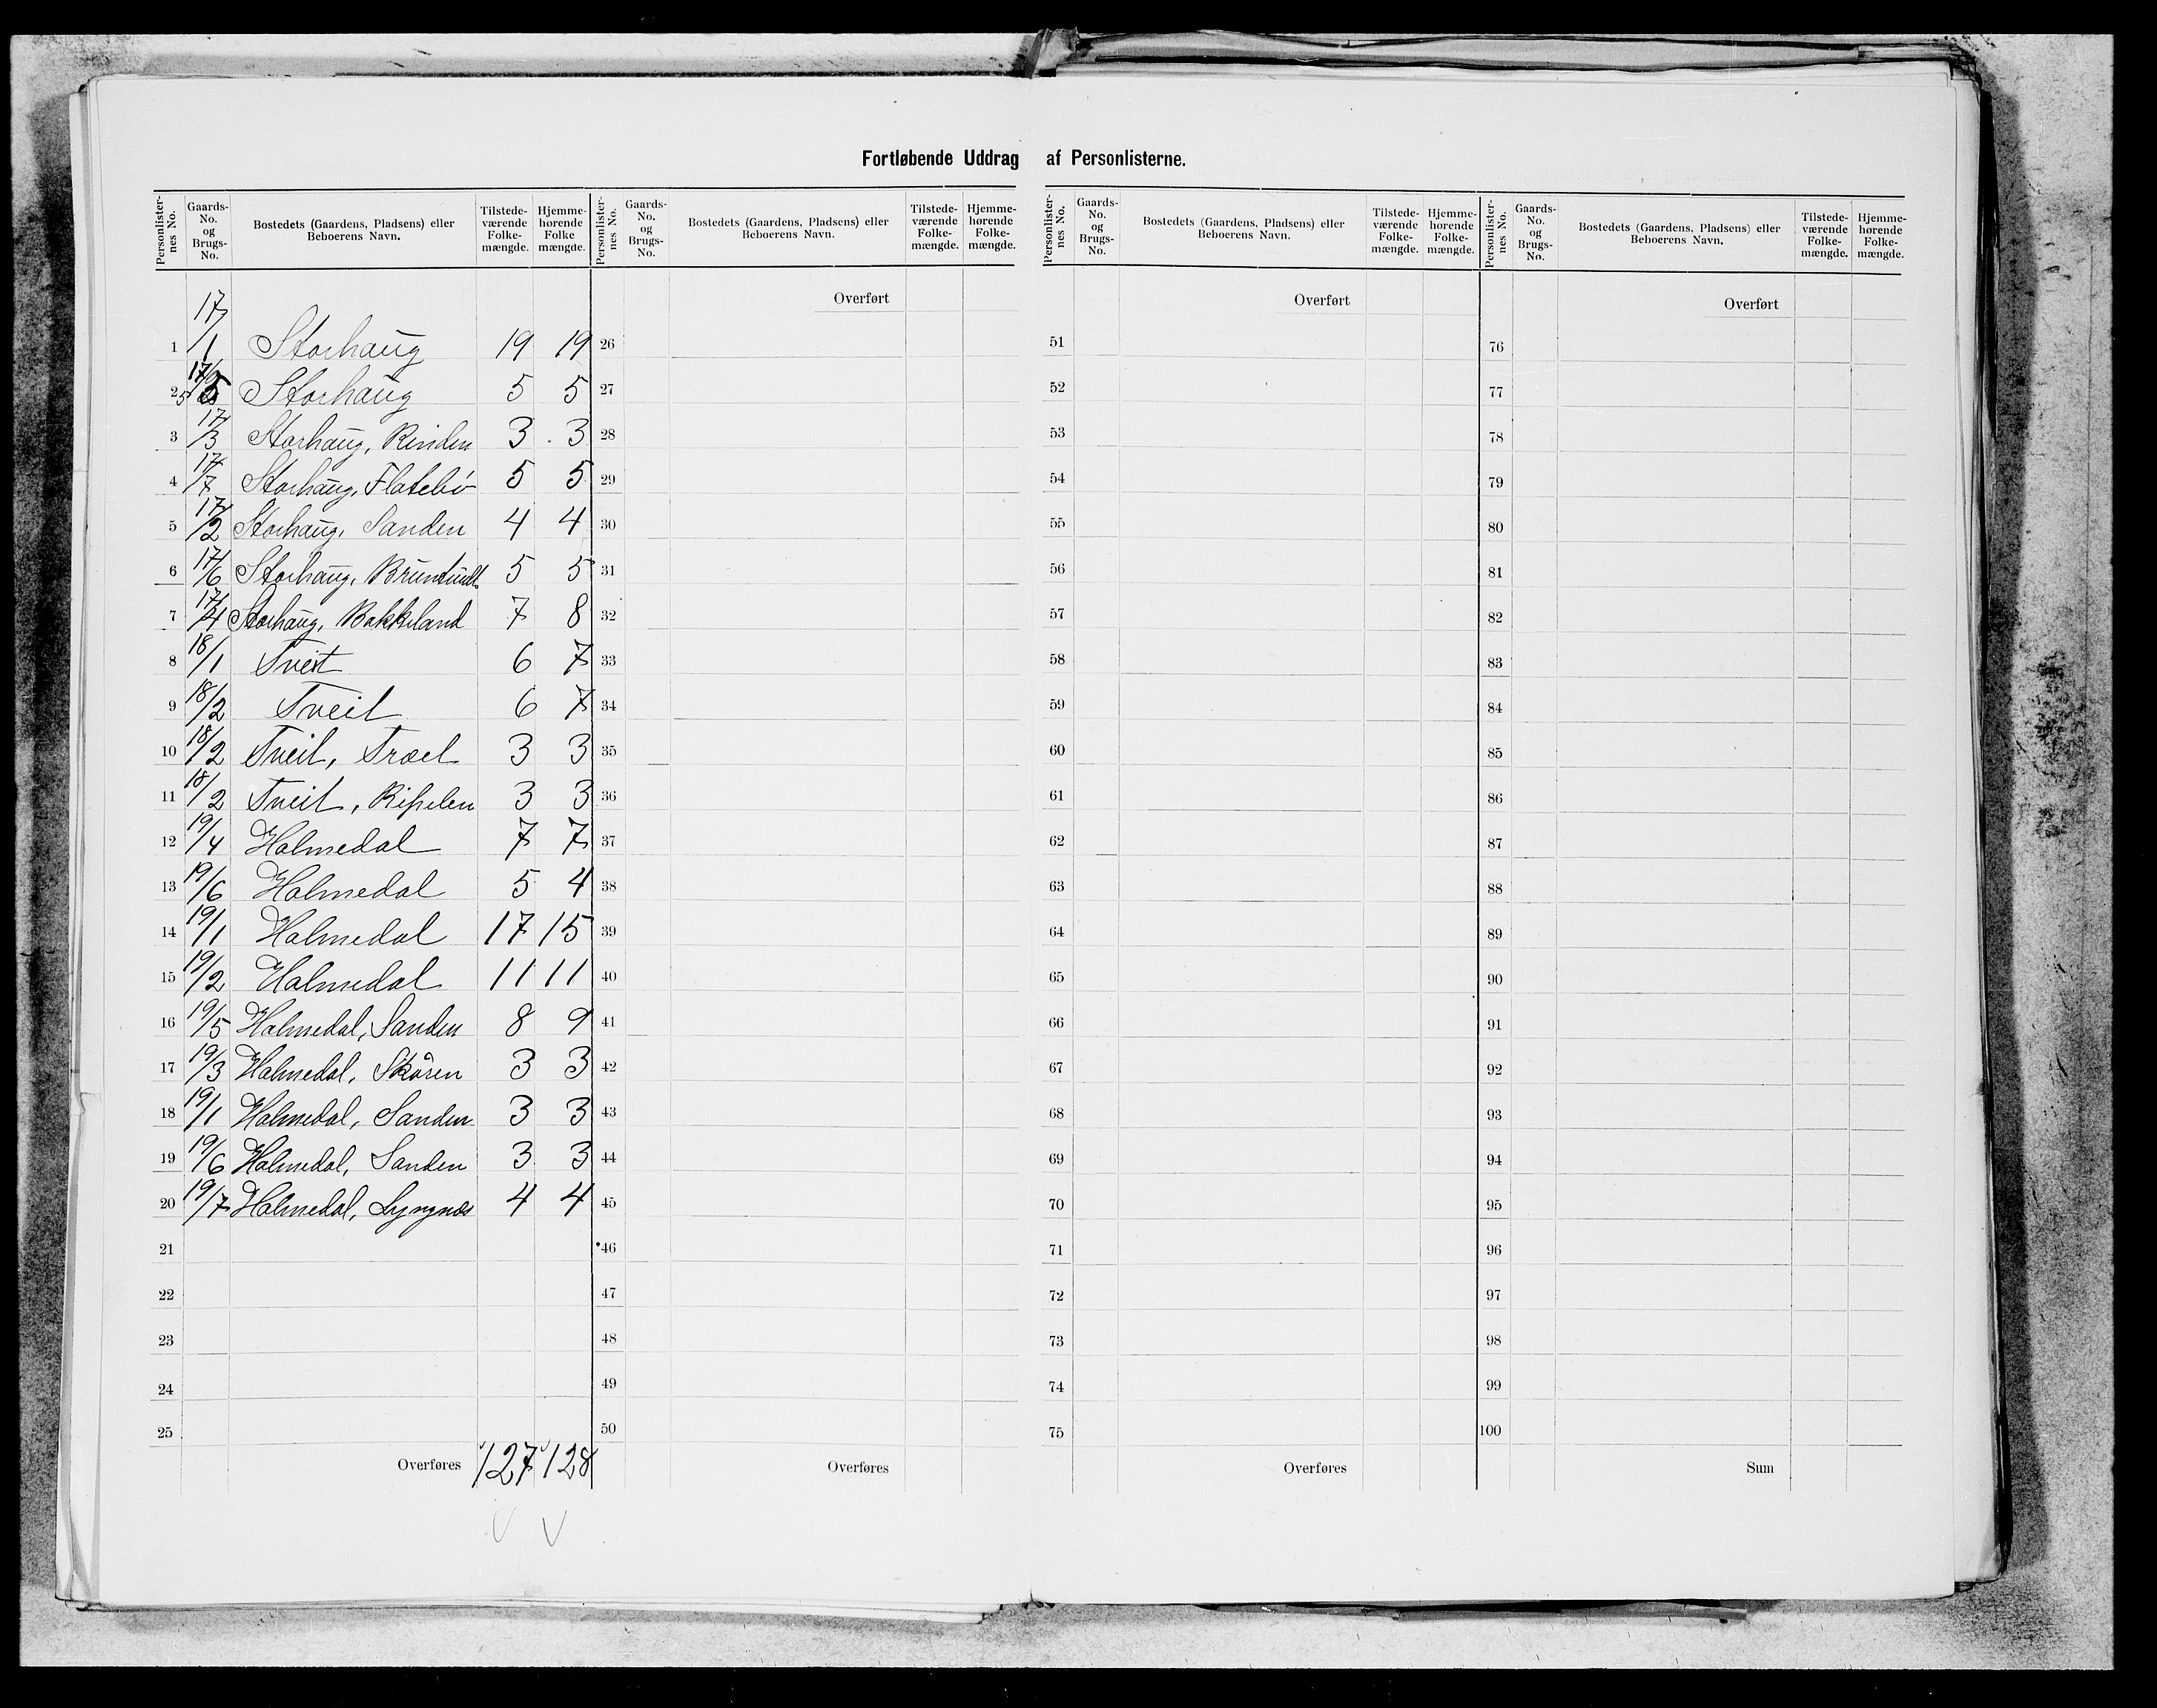 Fortløbende Uddrag af Personlisterne.
Personlister-nes No. | Gaards-No. og Brugs-No. | Bostedets (Gaardens, Pladsens) eller Beboerens Navn. | Tilstede-værende Folke-mængde. | Hjemme-hørende Folke mængde.
Personlister-nes No. | Gaards-No. og Brugs-No. | Bostedets (Gaardens, Pladsens) eller Beboerens Navn. | Tilstede-værende Folke-mængde. | Hjemme-hørende Folke-mængde.
Personlister-nes No. | Gaards-No. og Brugs-No. | Bostedets (Gaardens, Pladsens) eller Beboerens Navn. | Tilstede-værende Folke-mængde. | Hjemme-hørende Folke-mængde.
Personlister-nes No. | Gaards-No. og Brugs-No. | Bostedets (Gaardens, Pladsens) eller Beboerens Navn. | Tilstede-værende Folke-mængde. | Hjemme-hørende Folke-mængde.
1 17/1 Storhaug 19 19
2 17/5 Storhaug 5 5
3 17/3 Storhaug, Rinden 3 3
4 17/7 Storhaug, Flatebø 5 5
5 17/2 Storhaug, Sanden 4 4
6 17/6 Storhaug, 5 5
7 17/4 Storhaug, Bakkeland 7 8
8 18/1 Tveit 6 7
9 18/2 Tveit 6 7
10 18/2 Tveit, Træet 3 3
11 18/2 Tveit, 3 3
12 19/4 Holmedal 7 7
13 19/6 Holmedal 5 4
14 19/1 Holmedal 17 15
15 19/2 Holmedal 11 11
16 19/5 Holmedal, Sanden 8 9
17 19/3 Holmedal, Skåren 3 3
18 19/1 Holmedal, Sanden 3 3
19 19/6 Holmedal, Sanden 3 3
20 19/7 Holmedal, Lyngnæs 4 4
21
22
23
24
25
Overføres 127 128
Overført
26
27
28
29
30
31
32
33
34
35
36
37
38
39
40
41
42
43
44
45
46
47
48
49
50
Overføres
Overført
51
52
53
54
55
56
57
58
59
60
61
62
63
64
65
66
67
68
69
70
71
72
73
74
75
Overføres
Overført
76
77
78
79
80
81
82
83
84
85
86
87
88
89
90
91
92
93
94
95
96
97
98
99
100
Sum